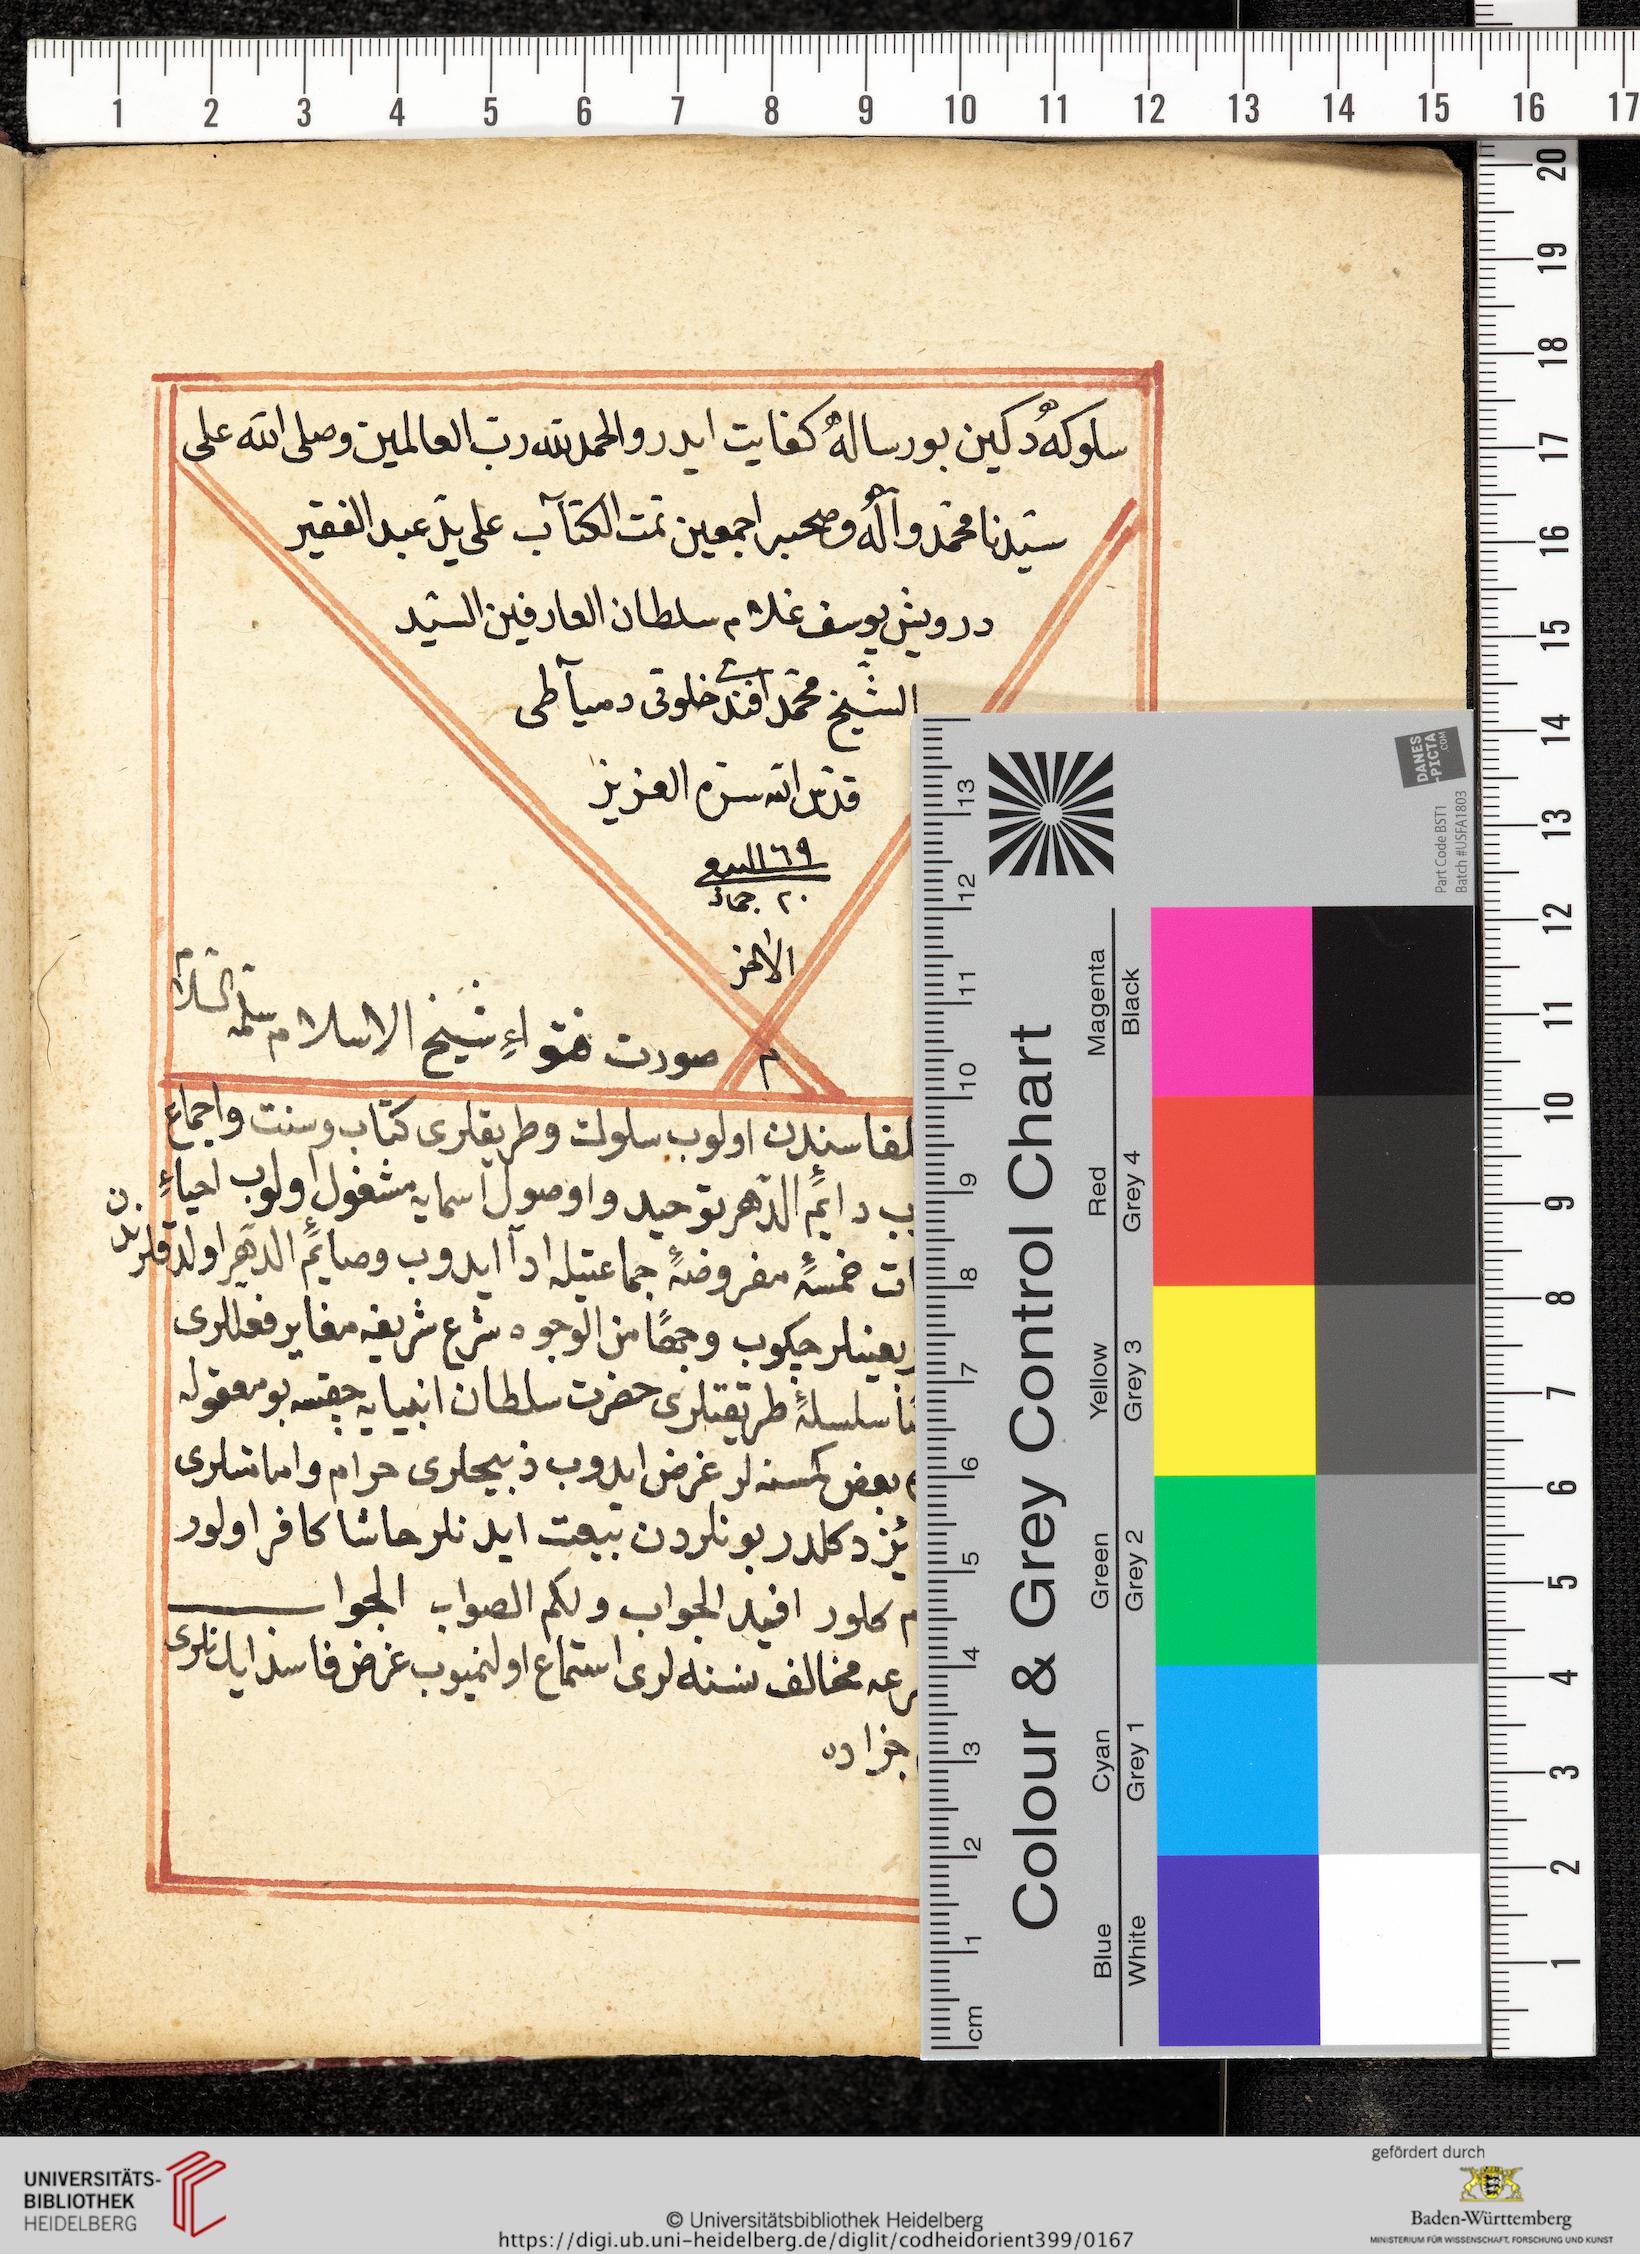 1 2 3 4 5 6 7 8 9 10 11 12 13 14 15 16 17
20 19 18 17 16 15 14 13 12 11 10 9 8 7 6 5 4 3 2 1
سلوكهُ دكين بو رسالهُ كفايت ايدر والحمد لله رب العالمين وصلى الله على
سيّدنا محمّد وآلهُ وصحبه اجمعين تمت الكتاب على يد عبد الفقير
درويش يوسف غلام سلطان العارفين السّيد
الشّيخ محمّد افندى خلوتى دمياطى
قدّس الله سرّه العزيز
٢٠ جماذ
الآخر
م
صورت فتواءِ شيخ الاسلام سلمه السّلام
اولوب سلوك وطريقلرى كتاب وسنت واجماع
دايم الدّهر توحيد واوصول اسمايه مشغول اولوب احياءِ
خمسهٔ مفروضهٔ جماعتيله ادا ايدوب وصايم الدّهر اولدقلرندن
چكوب وجهًا من الوجوه شرع شريفه مغاير فعللرى
سلسلهٔ طريقتلرى حضرت سلطان انبيايه چقسه بو معقوله
بعض كمسنه لر غرض ايدوب ذبيحلرى حرام وامامتلرى
دكلدر بونلردن بيعت ايدنلر حاشا كافر اولور
كلور افيد الجواب ولكم الصواب الجوا
مخالف نسنه لرى استماع اولنميوب غرض فاسد ايدنلرى
جزاده
DANES
-PICTA
.COM
Part Code BST1
Batch #USFA1803
Colour & Grey Control Chart
Magenta Black
Red Grey 4
Yellow Grey 3
Green Grey 2
Cyan Grey 1
Blue White
cm 1 2 3 4 5 6 7 8 9 10 11 12 13
UNIVERSITÄTS-
BIBLIOTHEK
HEIDELBERG
© Universitätsbibliothek Heidelberg
https://digi.ub.uni-heidelberg.de/diglit/codheidorient399/0167
gefördert durch
Baden-Württemberg
MINISTERIUM FÜR WISSENSCHAFT, FORSCHUNG UND KUNST